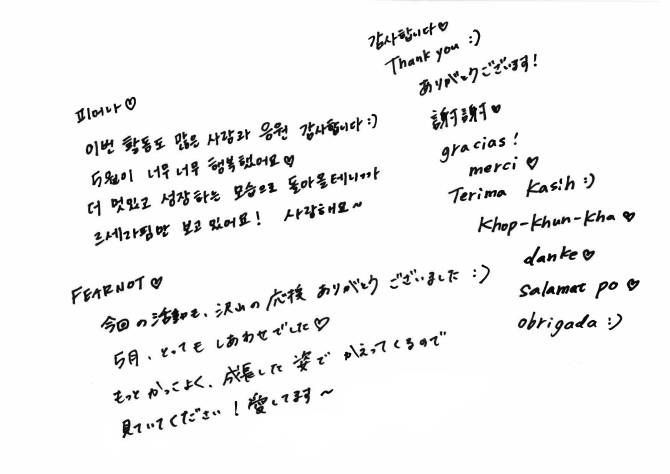 피어나♡
이번 활동도 많은 사랑과 응원 감사합니다:)
5월이 너무너무 행복했어요♡
더 멋있고 성장하는 모습으로 돌아올테니까
르세라핌만 보고 있어요! 사랑해요~
FEARNOT♡
今回の活動も、沢山の応援ありがとうございました:)
5月、とってもしあわせでした♡
もっとかっこよく、成長した姿でかえってくるので
見ていてください!愛してます~
감사합니다♡
Thank you :)
ありがとうございます!
謝謝♥
gracias!
merci♡
Terima Kasih:)
Khop-khun-kha♡
danke♡
salamat po♡
obrigada:)